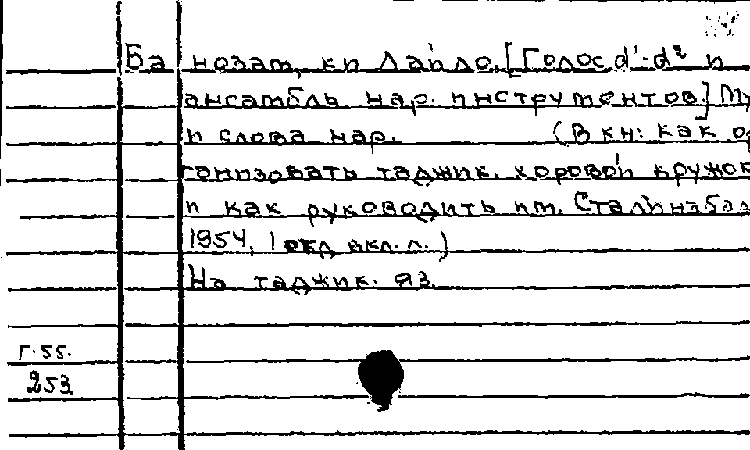 Ба нозам, ки Лайло. [Голос d¹-d² и
ансамбль нар. инструментов.] Му
и слова нар. (В кн: Как ор
ганизовать таджик. хоровой кружок
и как руководить им. Сталинабад
1954, 1 вкл. л.)
На таджик. яз.
Г.55.
253